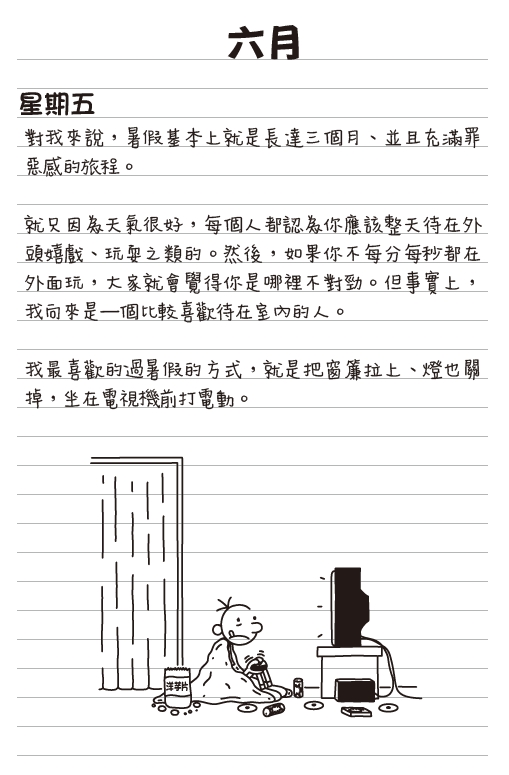 六月
星期五
對我來說，暑假基本上就是長達三個月、並且充滿罪
惡感的旅程。
就只因為天氣很好，每個人都認為你應該整天待在外
頭嬉戲、玩耍之類的。然後，如果你不每分每秒都在
外面玩，大家就會覺得你是哪裡不對勁。但事實上，
我向來是一個比較喜歡待在室內的人。
我最喜歡的過暑假的方式，就是把窗簾拉上、燈也關
掉，坐在電視機前打電動。
洋芋片